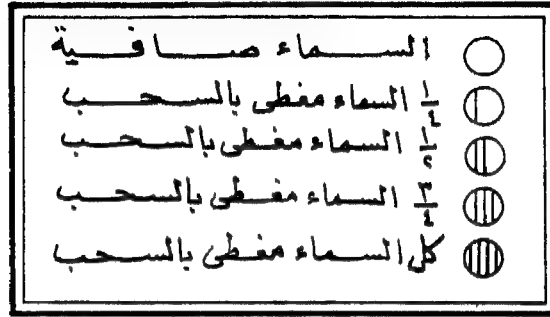 السماء صافية
١/٤ السماء مغطى بالسحب
١/٢ السماء مغطى بالسحب
٣/٤ السماء مغطى بالسحب
كل السماء مغطى بالسحب